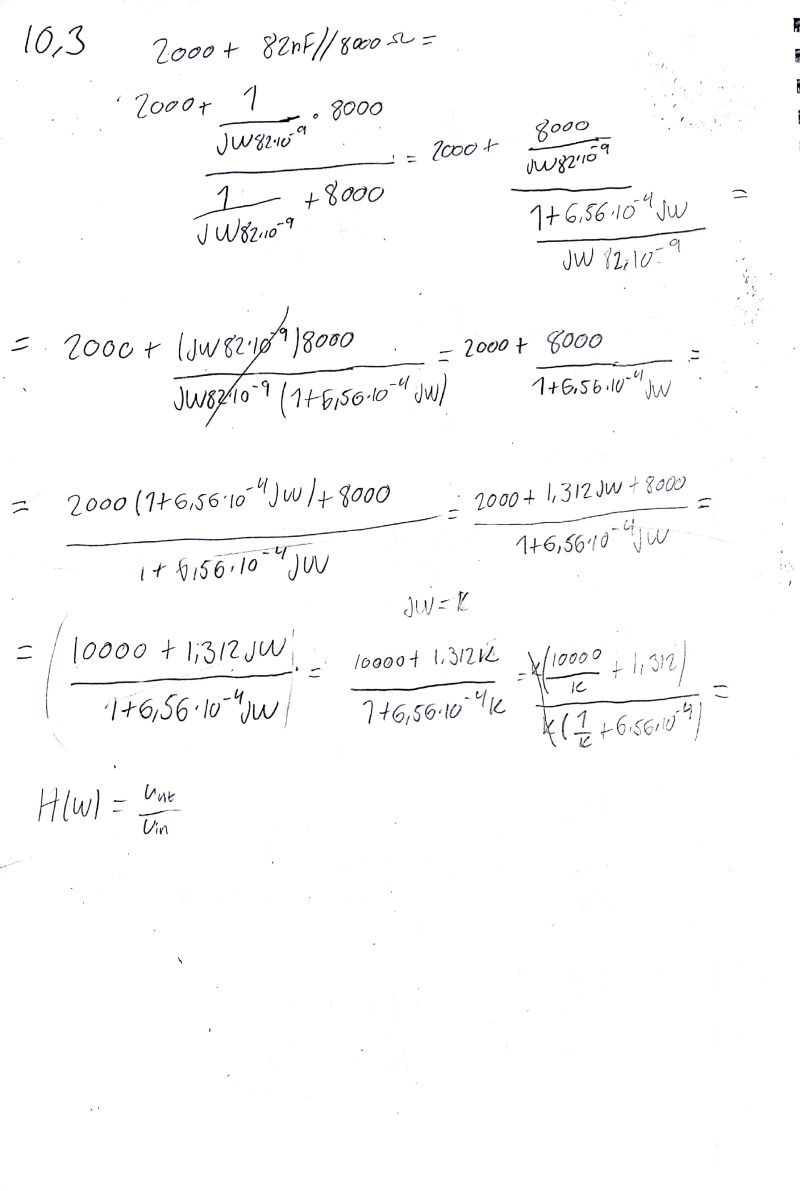 10,3 2000 + 82nF//8000 Ω =
2000 + (1/(jw82·10^-9) · 8000)/(1/(jw82·10^-9) + 8000) = 2000 + (8000/(jw82·10^-9))/((1+6,56·10^-4 jw)/(jw 82·10^-9)) =
= 2000 + ((jw82·10^-9)8000)/(jw82·10^-9 (1+6,56·10^-4 jw)) = 2000 + 8000/(1+6,56·10^-4 jw) =
= (2000(1+6,56·10^-4 jw)+8000)/(1+6,56·10^-4 jw) = (2000 + 1,312jw + 8000)/(1+6,56·10^-4 jw) =
jw = k
= ((10000 + 1,312jw)/(1+6,56·10^-4 jw)) = (10000 + 1,312k)/(1+6,56·10^-4 k) = k(10000/k + 1,312)/k(1/k + 6,56·10^-4) =
H(w) = Uut/Uin